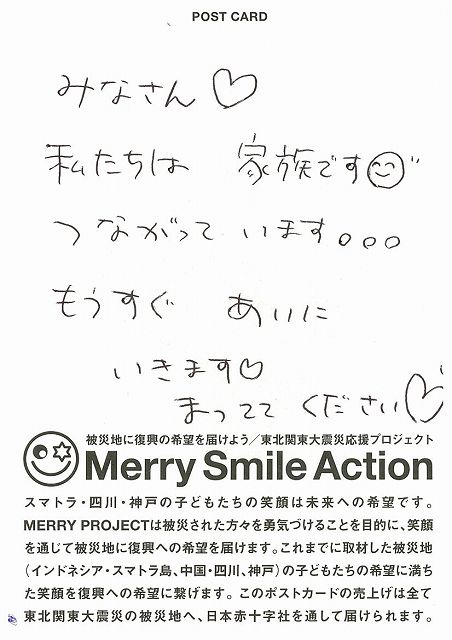 POST CARD
みなさん♡
私たちは 家族です☺"
つながって います。。。
もうすぐ あいに
いきます♡
まってて ください♡
被災地に復興の希望を届けよう／東北関東大震災応援プロジェクト
Merry Smile Action
スマトラ・四川・神戸の子どもたちの笑顔は未来への希望です。
MERRY PROJECTは被災された方々を勇気づけることを目的に、笑顔
を通じて被災地に復興への希望を届けます。これまでに取材した被災地
（インドネシア・スマトラ島、中国・四川、神戸）の子どもたちの希望に満ち
た笑顔を復興への希望に繋げます。このポストカードの売上げは全て
東北関東大震災の被災地へ、日本赤十字社を通して届けられます。